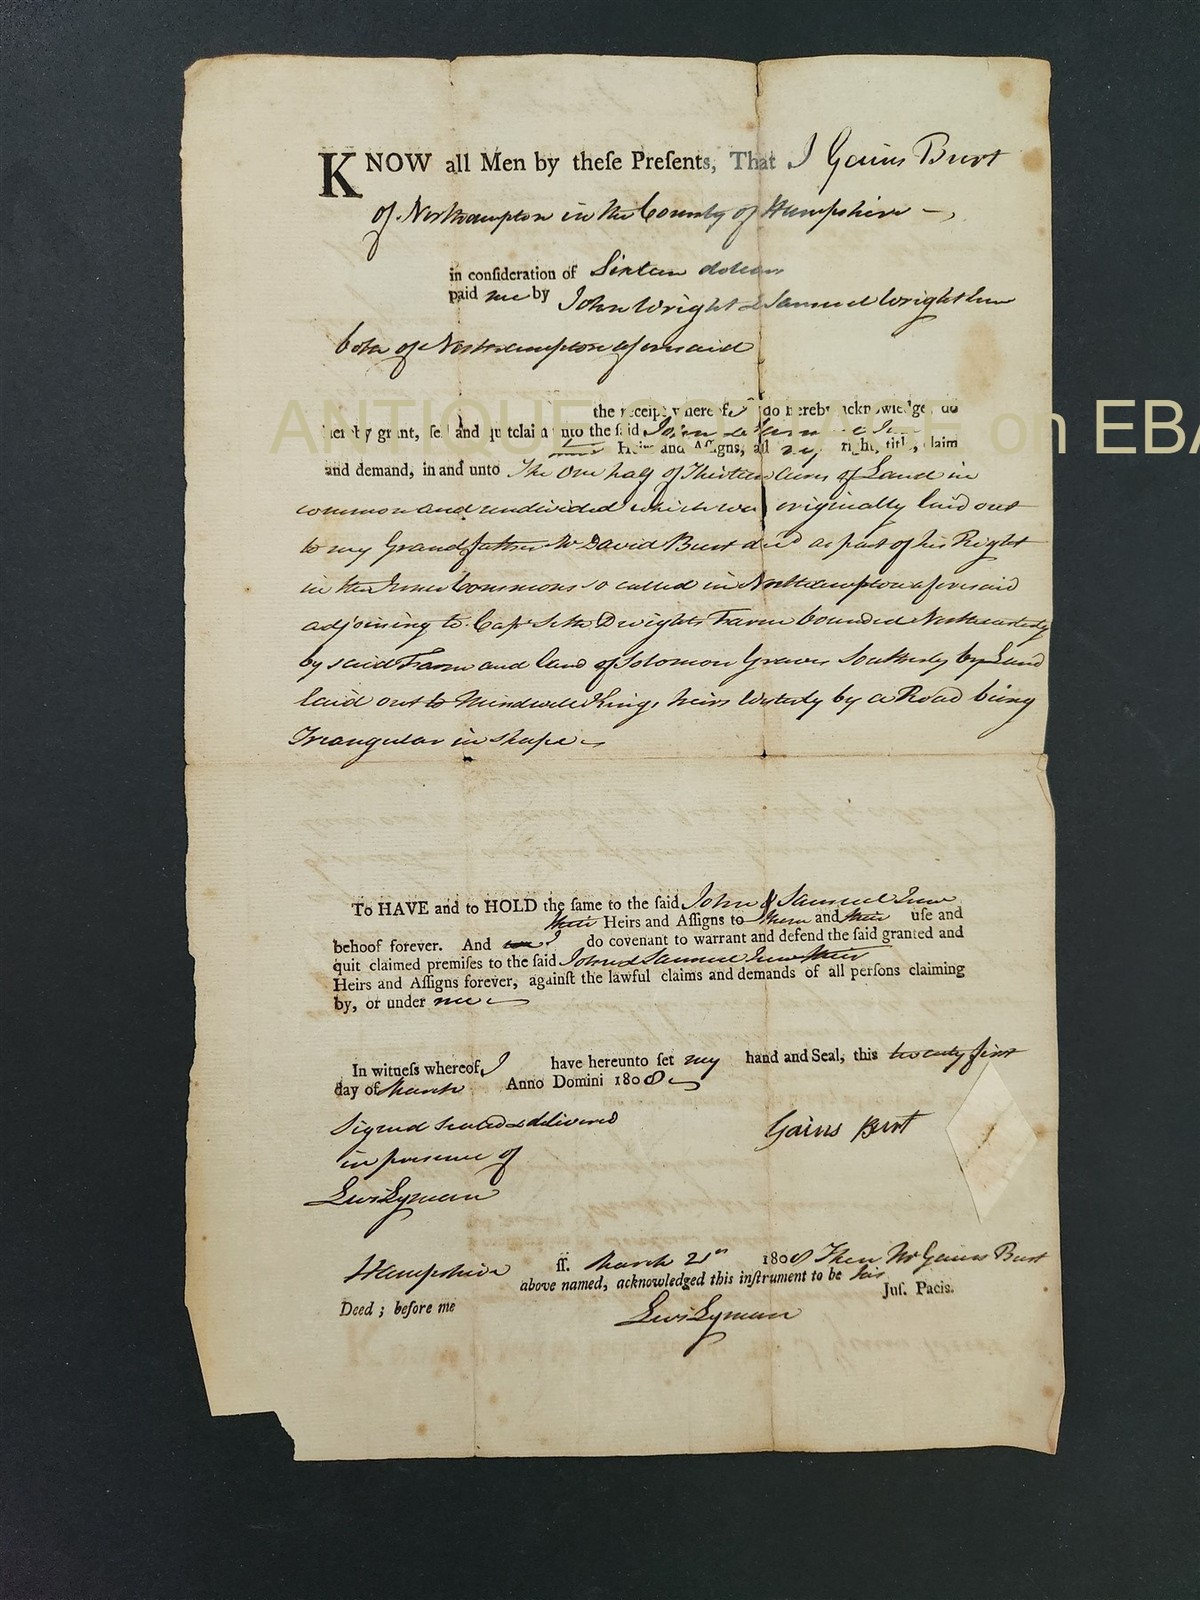 KNOW all Men by theſe Preſents, That I Gains Burt
of Northampton in the County of Hampshire
in conſideration of Sixteen dollars
paid me by John Wright & Samuel Wright Junr
both of Northampton aforesaid
the receipt whereof I do hereby acknowledge, do
hereby grant, ſell and quitclaim unto the ſaid John & Samuel Junr
ANTIQUE on EBA
their Heirs and Aſſigns, all my right, title, claim
and demand, in and unto The One half of Thirteen Acres of Land in
common and undivided which was originally laid out
to my Grandfather Mr David Burt decd as part of his Right
in the Inner Commons so called in Northampton aforesaid
adjoining to Capt Seth Dwights Farm bounded Northeasterly
by said Farm and land of Solomon Graves Southerly by Land
laid out to Mindwell Kings heirs Westerly by a Road being
Triangular in shape
To HAVE and to HOLD the ſame to the ſaid John & Samuel Junr
their Heirs and Aſſigns to them and their uſe and
behoof forever. And I do covenant to warrant and defend the ſaid granted and
quit claimed premiſes to the ſaid John & Samuel Junr their
Heirs and Aſſigns forever, againſt the lawful claims and demands of all perſons claiming
by, or under me
In witneſs whereof, I have hereunto ſet my hand and Seal, this twenty first
day of March Anno Domini 1808
Signed sealed & delivered
in presence of
Gains Burt
Levi Lyman
Hampshire ſſ. March 21st 1808 Then Mr Gains Burt
above named, acknowledged this inſtrument to be his
Deed; before me Levi Lyman Juſ. Pacis.